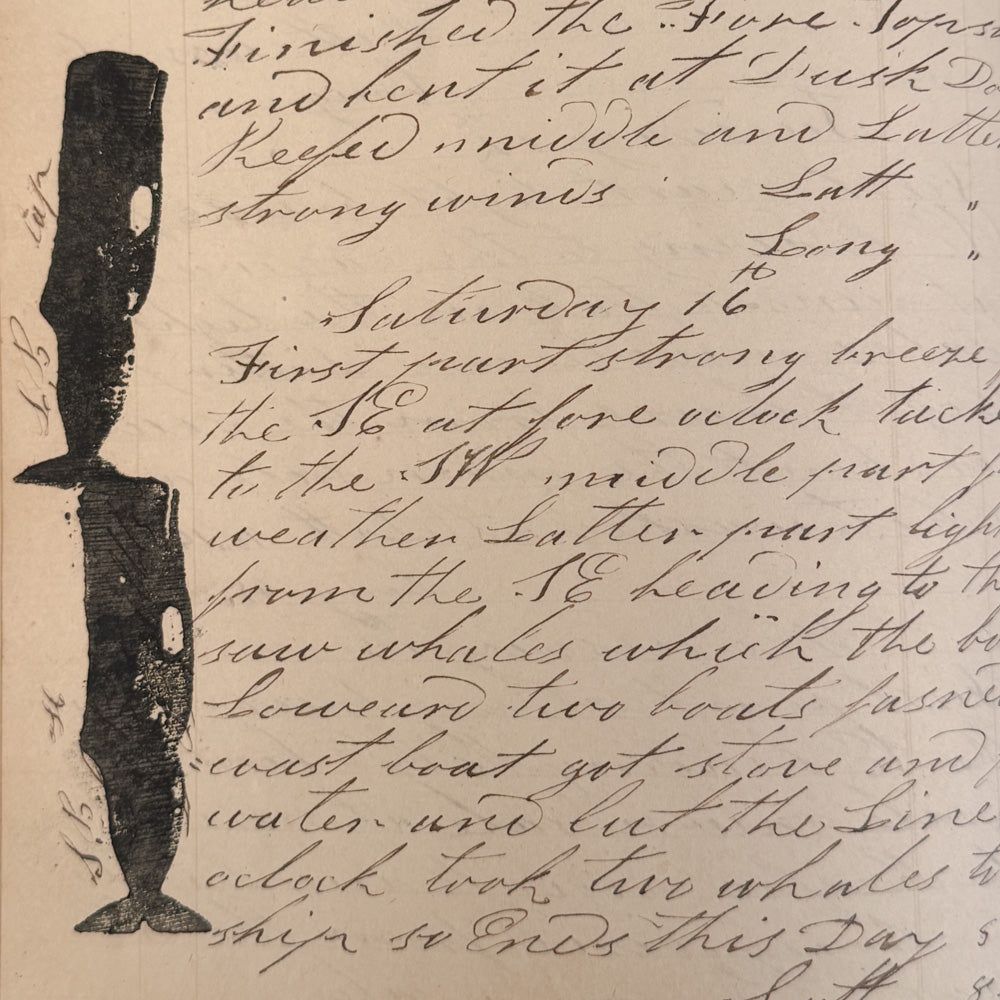 Finished the Fore Tops
and bent it at Dusk Do
Reefed middle and Latte
strong winds Latt "
Long "
Saturday 16th
First part strong breeze
the SE at fore oclock tack
to the SW middle part
weather Latter part ligh
from the SE heading to th
saw whales whick the bo
Loweard two boats fasne
wast boat got stove and
water and cut the Line
oclock took two whales to
ship so Ends this Day
Latt
S.B
cap
L.B
st